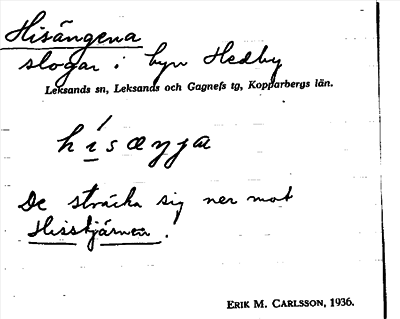 Hisängena
slogar i byn Hedby
Leksands sn, Leksands och Gagnefs tg, Kopparbergs län.
hísæŋja
De sträcka sig ner mot
Hisstjärnen.
ERIK M. CARLSSON, 1936.